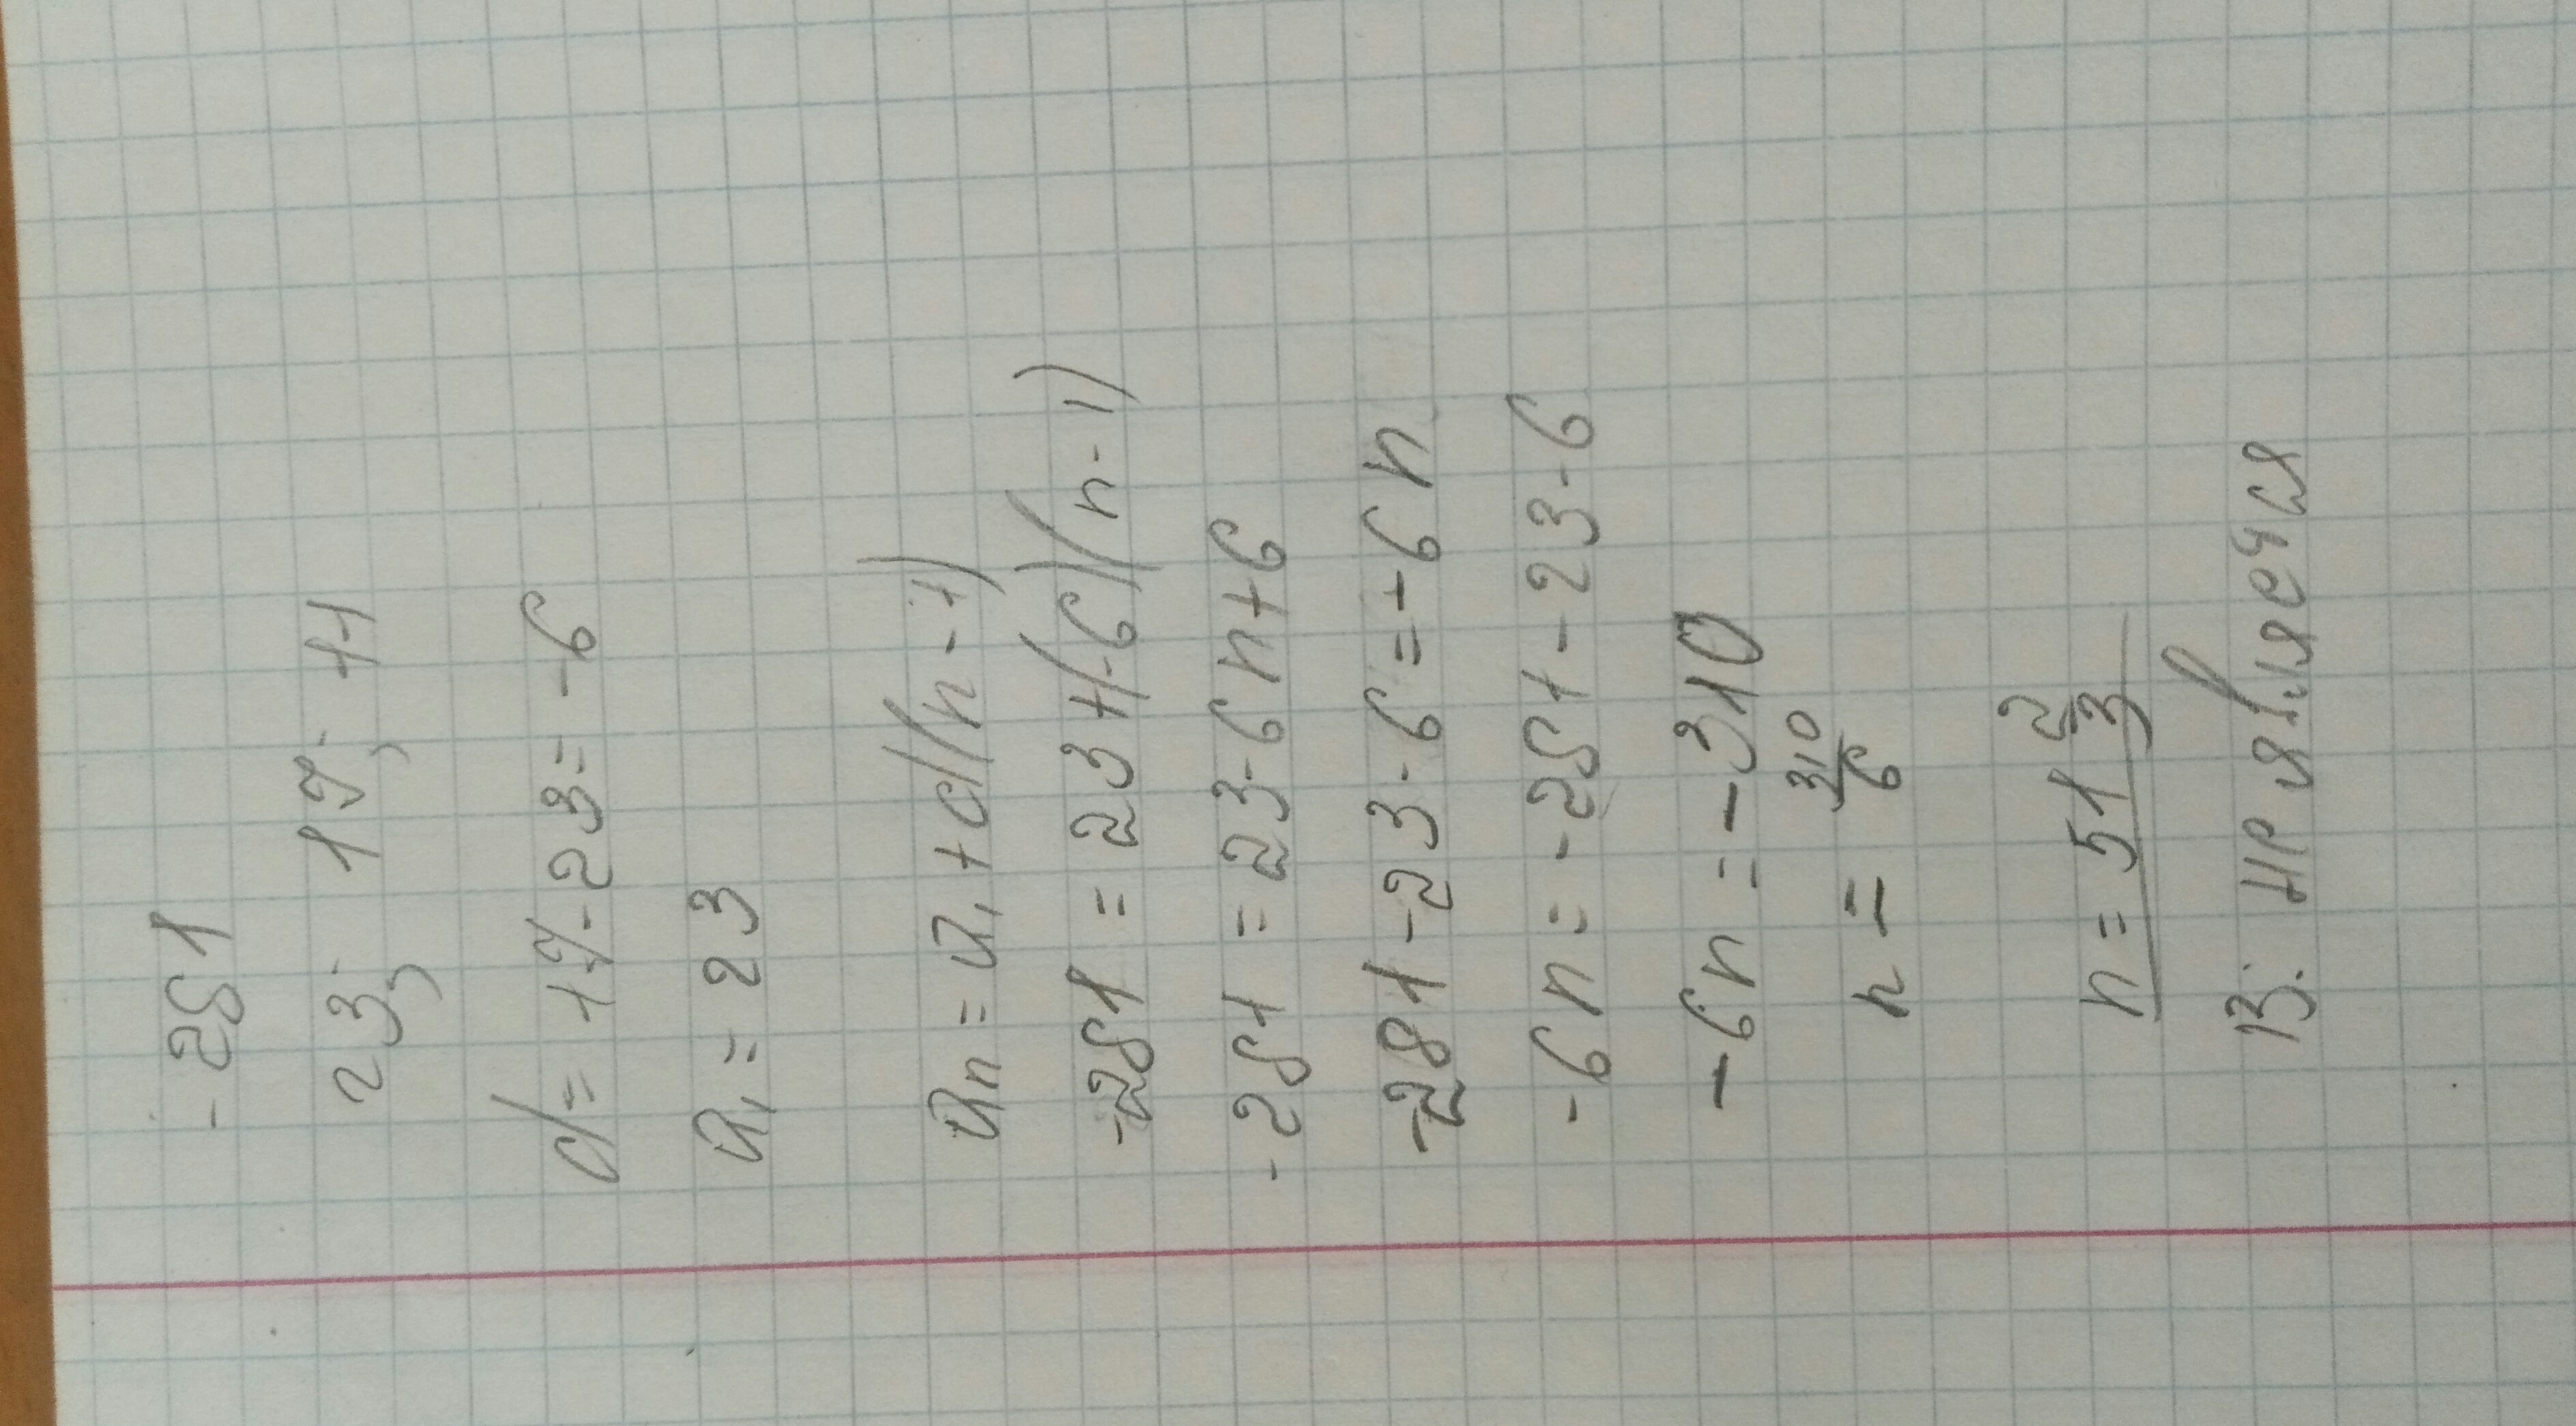 - 281
23; 17; 11
d = 17-23 = -6
a₁ = 23
aₙ = a₁ + d(n-1)
-281 = 23+(-6)(n-1)
-281 = 23-6n+6
-281-23-6=-6n
-6n = -281-23-6
-6n = -310
n = 310/6
n = 51 2/3
В: не является